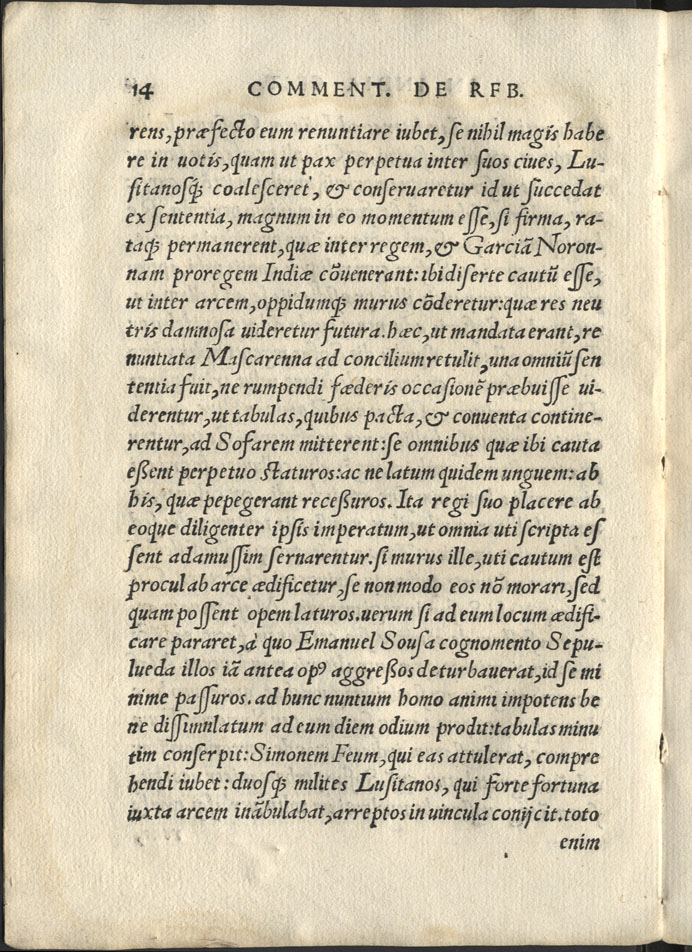 14 COMMENT. DE RFB.
rens, præfecto eum renuntiare iubet, ſe nihil magis habe
re in uotis, quam ut pax perpetua inter ſuos ciues, Lu-
ſitanosq́ꝫ coaleſceret, & conſeruaretur id ut ſuccedat
ex ſententia, magnum in eo momentum eſſe, ſi firma, ra-
taq́ꝫ permanerent, quæ inter regem, & Garciā Noron-
nam proregem Indiæ cōuenerant: ibi diſerte cautū eſſe,
ut inter arcem, oppidumq́ꝫ murus cōderetur: quæ res neu
tris damnoſa uideretur futura. hæc, ut mandata erant, re
nuntiata Maſcarenna ad concilium retulit, una omniū ſen
tentia fuit, ne rumpendi fœderis occaſionē præbuiſſe ui-
derentur, ut tabulas, quibus pacta, & conuenta contine-
rentur, ad Sofarem mitterent: ſe omnibus quæ ibi cauta
eßent perpetuo ſtaturos: ac ne latum quidem unguem: ab
his, quæ pepegerant receßuros. Ita regi ſuo placere ab
eoque diligenter ipſis imperatum, ut omnia uti ſcripta eſ
ſent adamuſſim ſernarentur. ſi murus ille, uti cautum eſt
procul ab arce ædificetur, ſe non modo eos nō morari, ſed
quam poſſent opem laturos. uerum ſi ad eum locum ædifi-
care pararet, à quo Emanuel Souſa cognomento Sepu-
lueda illos iā antea opꝰ aggreßos deturbauerat, id ſe mi
nime paſſuros. ad hunc nuntium homo animi impotens be
ne diſſimulatum ad eum diem odium prodit: tabulas minu
tim conſerpit: Simonem Feum, qui eas attulerat, compre
hendi iubet: duosq́ꝫ milites Luſitanos, qui forte fortuna
iuxta arcem inābulabat, arreptos in uincula conijcit. toto
enim